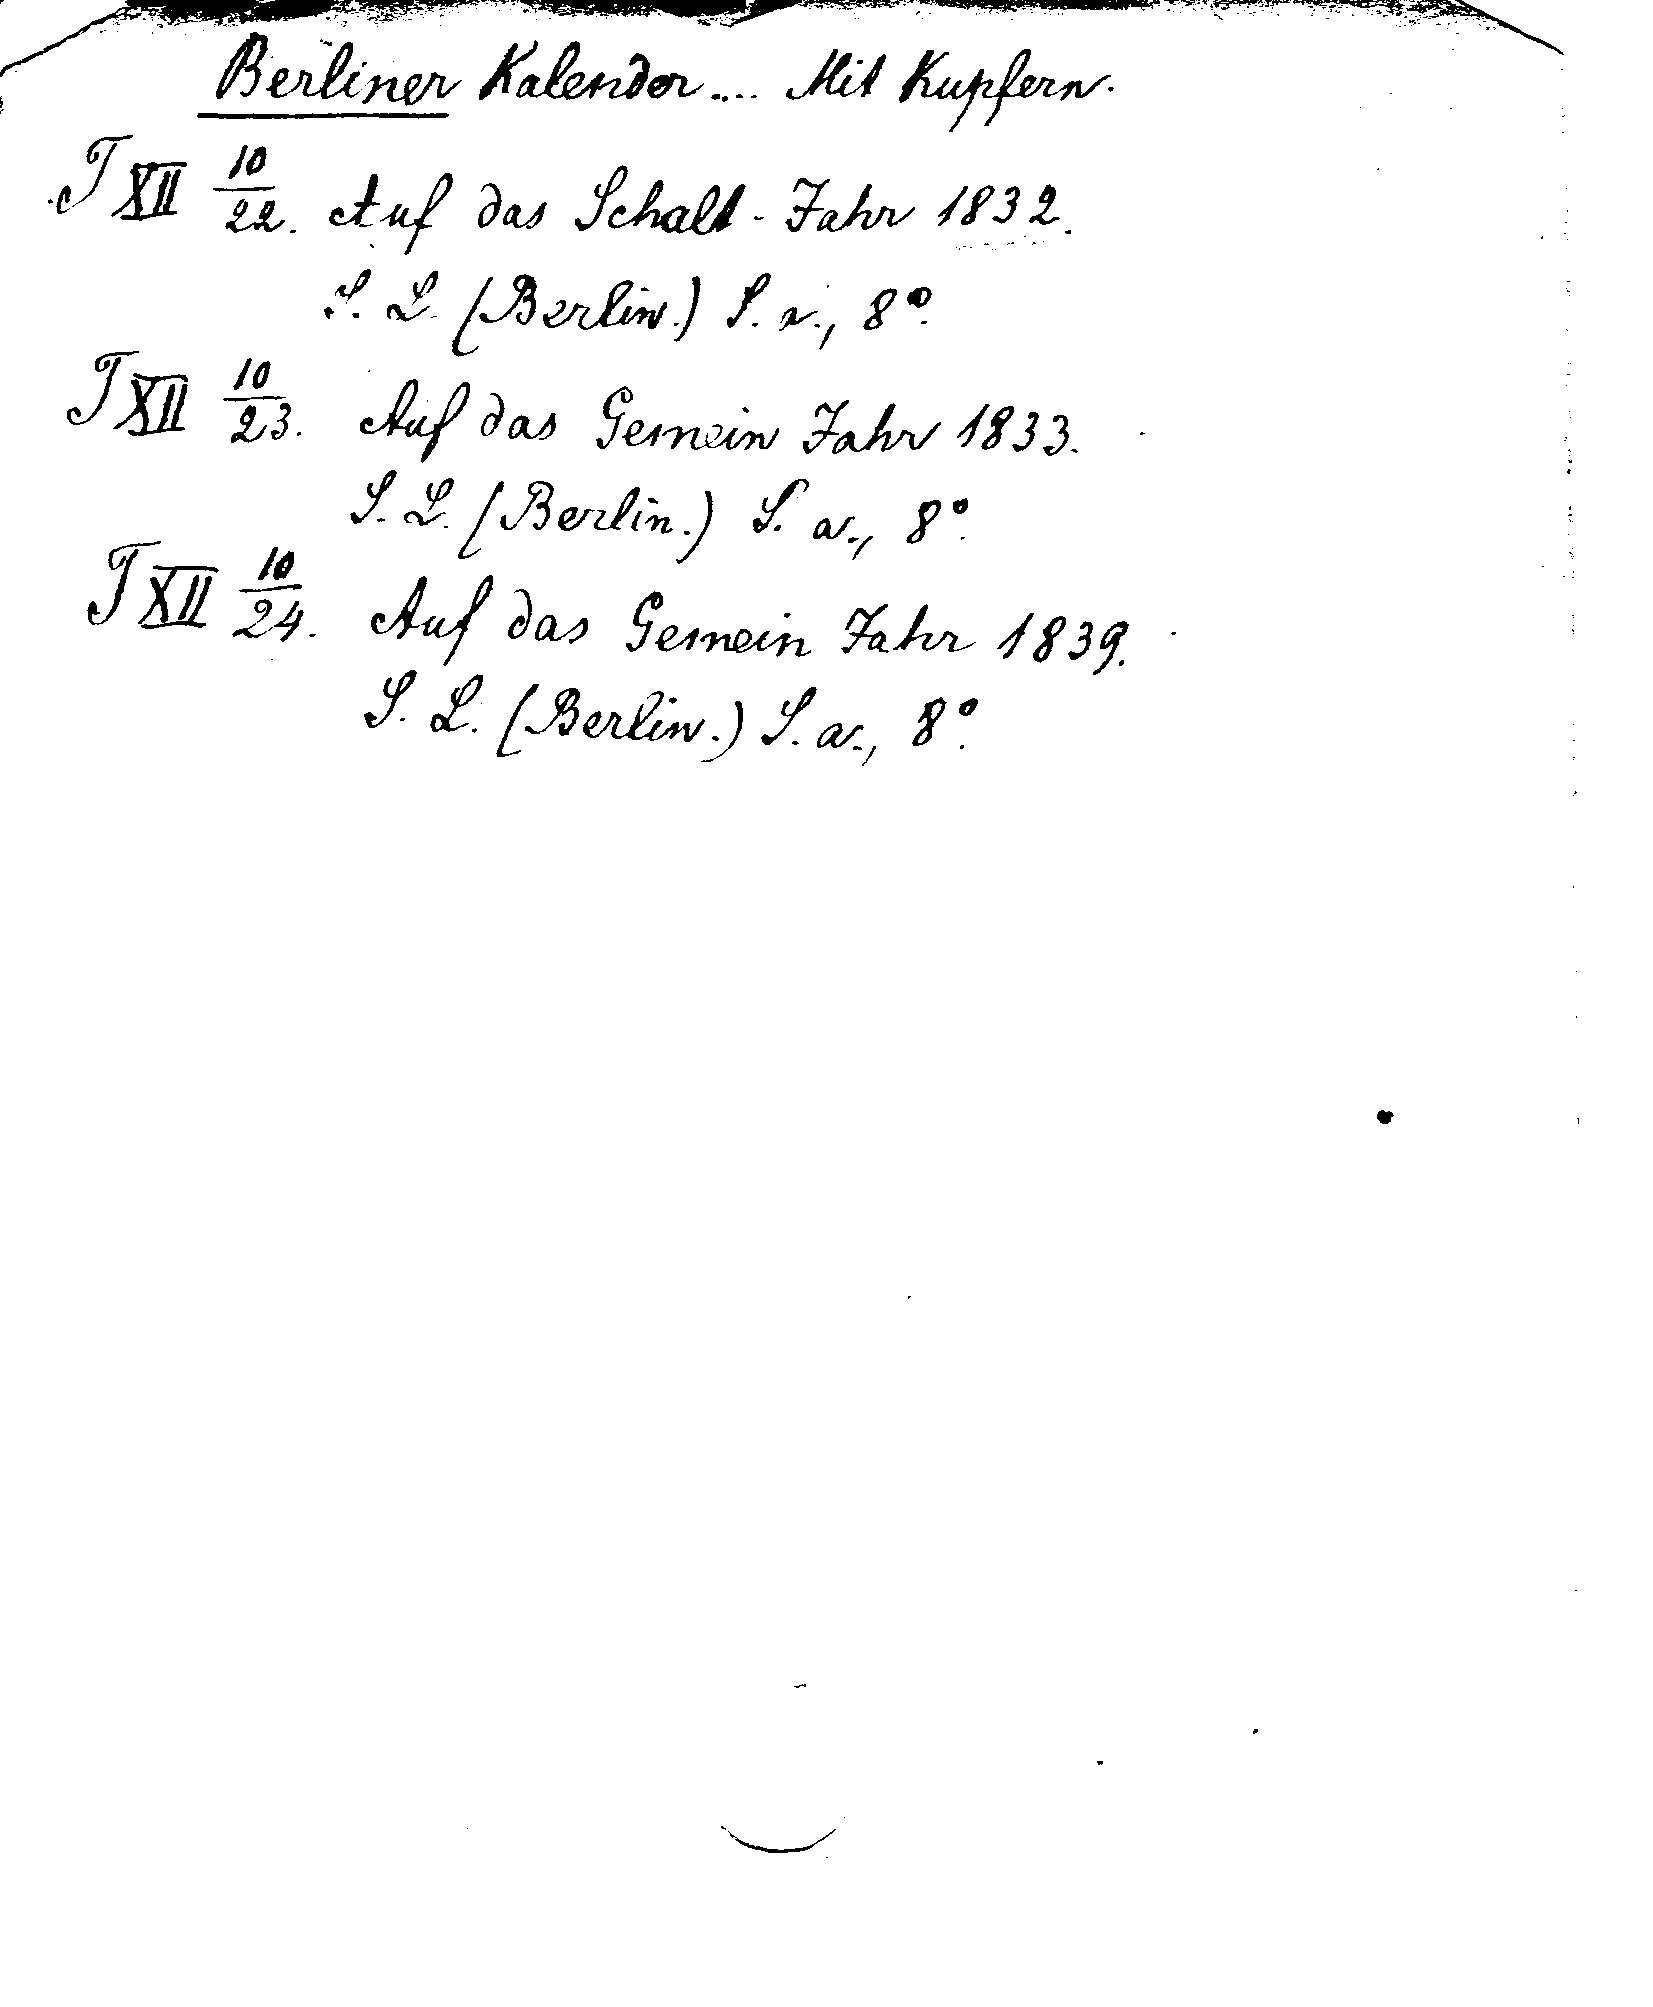 Berliner Kalender .... Mit Kupfern.
T XII 10/22. Auf das Schalt-Jahr 1832.
S. L. (Berlin.) S. a., 8°.
T XII 10/23. Auf das Gemein Jahr 1833.
S. L. (Berlin.) S. a., 8°.
T XII 10/24. Auf das Gemein Jahr 1839.
S. L. (Berlin.) S. a., 8°.